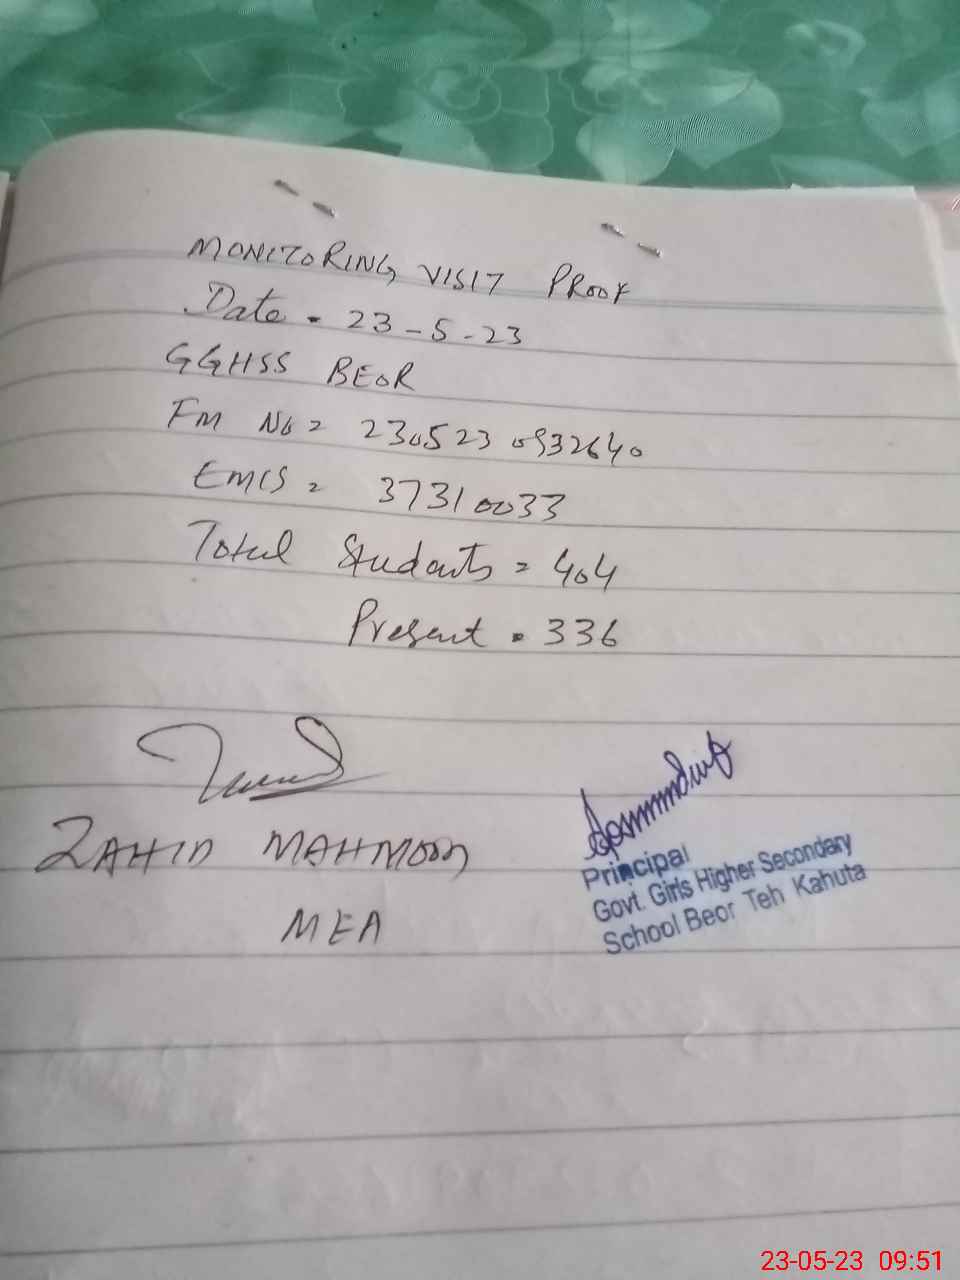 MONITORING VISIT PROOF
Date = 23-5-23
GGHSS BEOR
FM No = 2305230932640
EMIS = 37310033
Total Students = 404
Present = 336
ZAHID MAHMOOD
MEA
Principal
Govt. Girls Higher Secondary
School Beor Teh Kahuta
23-05-23 09:51